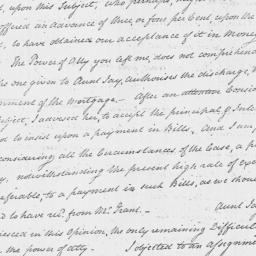 upon this Subject, who perhaps, might
offered an Advance of three or four per Cent, upon the
to have obtained our acceptance of it in Money
The Power of Atty you ask me, does not comprehend
one given to Aunt Jay, authorises the discharge,
of the Mortgage. — After an attention
I advised her, to accept the principal &
not to insist upon a payment in Bills. And I am
considering all the Circumstances of the Case, a
notwithstanding the present high rate of
to a payment in such Bills, as we should
to have recd. from Mr. Grant. — Aunt Jay
in this Opinion, the only remaining Difficult
the power of atty. — I objected to an assignme